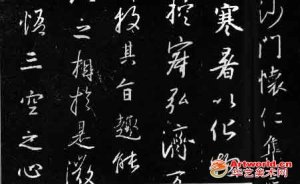 沙門懷仁集
寒暑以化
控寂弘濟万
投其旨趣能
之相於是微
悟三空之心
Artworld.cn
华艺美术网